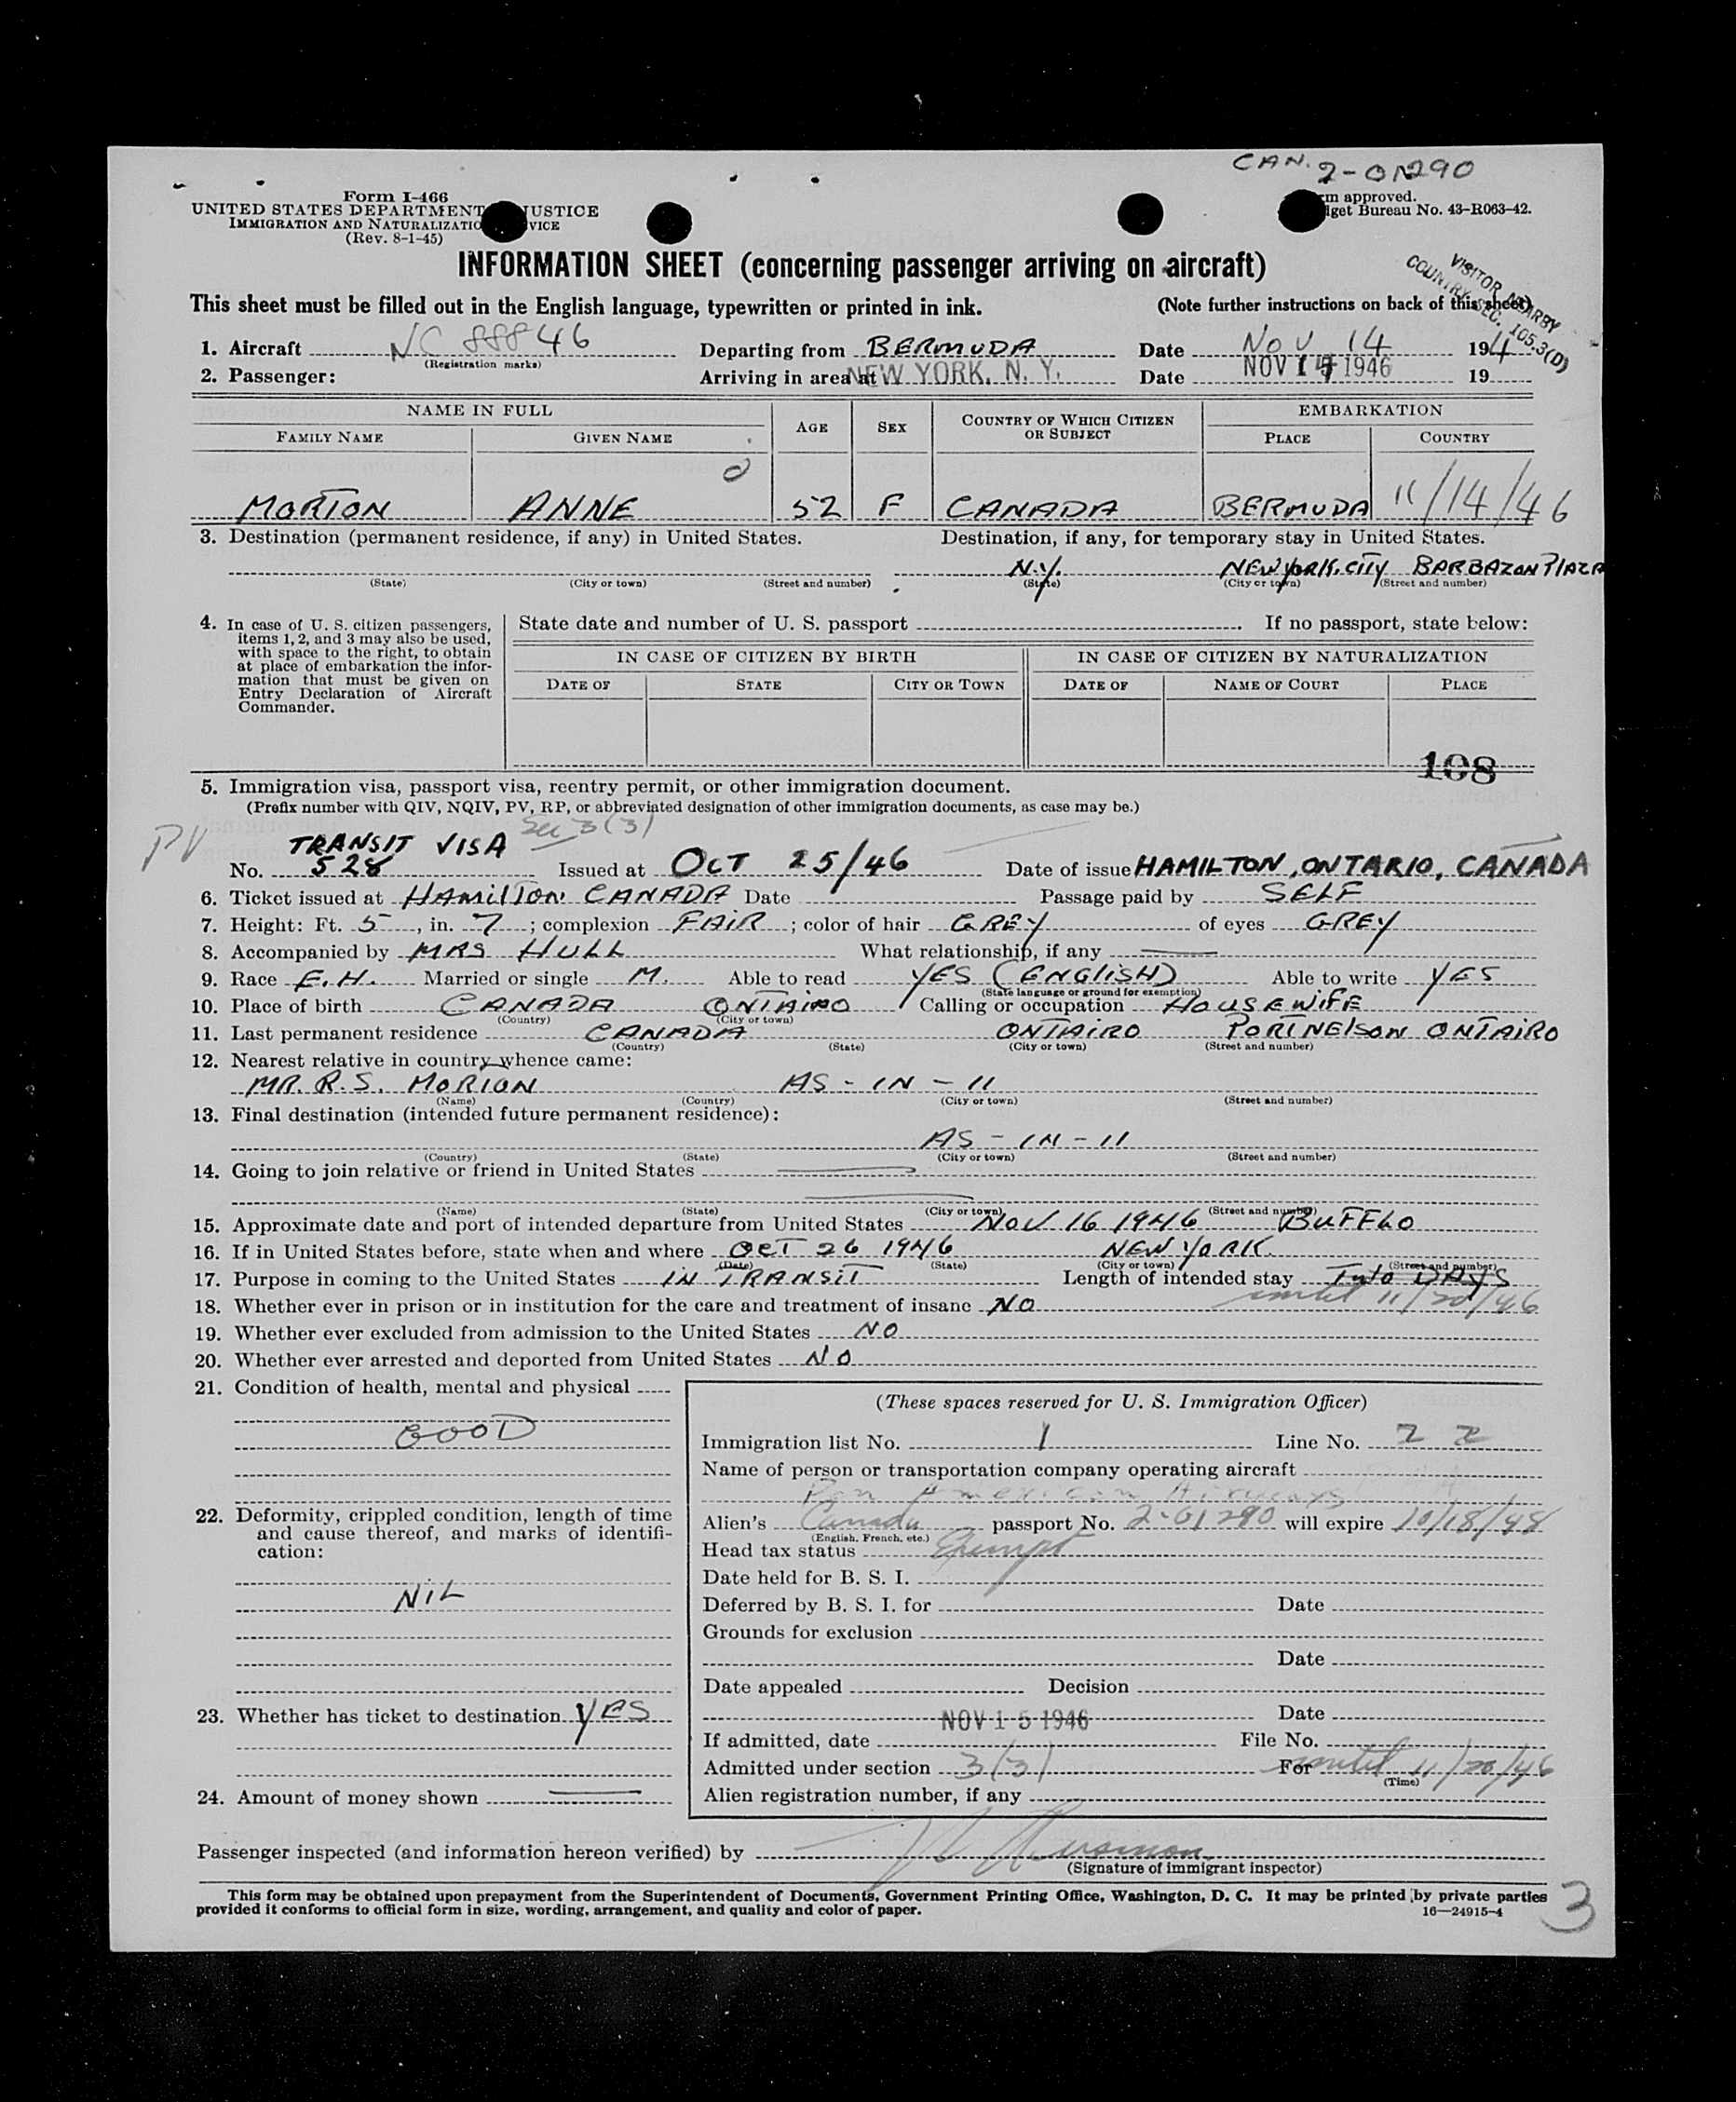 CAN. 2-01290
Form I-466
UNITED STATES DEPARTMENT JUSTICE
IMMIGRATION AND NATURALIZATIO VICE
(Rev. 8-1-45)
m approved.
get Bureau No. 43-R063-42.
INFORMATION SHEET (concerning passenger arriving on aircraft)
VISITOR NEARBY
COUNTRY SEC. 105.3(D)
This sheet must be filled out in the English language, typewritten or printed in ink. (Note further instructions on back of this sheet)
1. Aircraft NC 88846 Departing from BERMUDA Date NOV 14 194
(Registration marks)
2. Passenger: Arriving in area at NEW YORK, N. Y. Date NOV 15 1946 19
NAME IN FULL AGE SEX COUNTRY OF WHICH CITIZEN OR SUBJECT EMBARKATION
FAMILY NAME GIVEN NAME PLACE COUNTRY
MORTON ANNE 52 F CANADA BERMUDA 11/14/46
3. Destination (permanent residence, if any) in United States. Destination, if any, for temporary stay in United States.
N.Y. NEW YORK. CITY BARBAZON PLAZA
(State) (City or town) (Street and number) (State) (City or town) (Street and number)
4. In case of U. S. citizen passengers, items 1, 2, and 3 may also be used, with space to the right, to obtain at place of embarkation the information that must be given on Entry Declaration of Aircraft Commander.
State date and number of U. S. passport If no passport, state below:
IN CASE OF CITIZEN BY BIRTH IN CASE OF CITIZEN BY NATURALIZATION
DATE OF STATE CITY OR TOWN DATE OF NAME OF COURT PLACE
108
5. Immigration visa, passport visa, reentry permit, or other immigration document.
(Prefix number with QIV, NQIV, PV, RP, or abbreviated designation of other immigration documents, as case may be.)
PV TRANSIT VISA Sec 3(3)
No. 528 Issued at OCT 25/46 Date of issue HAMILTON, ONTARIO, CANADA
6. Ticket issued at HAMILTON CANADA Date Passage paid by SELF
7. Height: Ft. 5, in. 7; complexion FAIR; color of hair GREY of eyes GREY
8. Accompanied by MRS HULL What relationship, if any
9. Race E.H. Married or single M. Able to read YES (ENGLISH) Able to write YES
(State language or ground for exemption)
10. Place of birth CANADA ONTAIRO Calling or occupation HOUSEWIFE
(Country) (City or town)
11. Last permanent residence CANADA ONTAIRO PORTNELSON ONTAIRO
(Country) (State) (City or town) (Street and number)
12. Nearest relative in country whence came:
MR. R.S. MORTON AS - IN - 11
(Name) (Country) (City or town) (Street and number)
13. Final destination (intended future permanent residence):
AS - IN - 11
(Country) (State) (City or town) (Street and number)
14. Going to join relative or friend in United States
(Name) (State) (City or town) (Street and number)
15. Approximate date and port of intended departure from United States NOV 16 1946 BUFFLO
16. If in United States before, state when and where OCT 26 1946 NEW YORK
(Date) (State) (City or town) (Street and number)
17. Purpose in coming to the United States IN TRANSIT Length of intended stay Two DAYS
18. Whether ever in prison or in institution for the care and treatment of insane NO until 11/20/46
19. Whether ever excluded from admission to the United States NO
20. Whether ever arrested and deported from United States NO
21. Condition of health, mental and physical
GOOD
22. Deformity, crippled condition, length of time and cause thereof, and marks of identification:
NIL
23. Whether has ticket to destination YES
24. Amount of money shown
(These spaces reserved for U. S. Immigration Officer)
Immigration list No. 1 Line No. 22
Name of person or transportation company operating aircraft
Pan American Airways
Alien's Canada passport No. 2-01290 will expire 10/18/48
(English, French, etc.)
Head tax status Exempt
Date held for B. S. I.
Deferred by B. S. I. for Date
Grounds for exclusion
Date
Date appealed Decision
NOV 15 1946 Date
If admitted, date File No.
Admitted under section 3(3) For until 11/20/46
(Time)
Alien registration number, if any
Passenger inspected (and information hereon verified) by
(Signature of immigrant inspector)
This form may be obtained upon prepayment from the Superintendent of Documents, Government Printing Office, Washington, D. C. It may be printed by private parties
provided it conforms to official form in size, wording, arrangement, and quality and color of paper. 16—24915-4
3